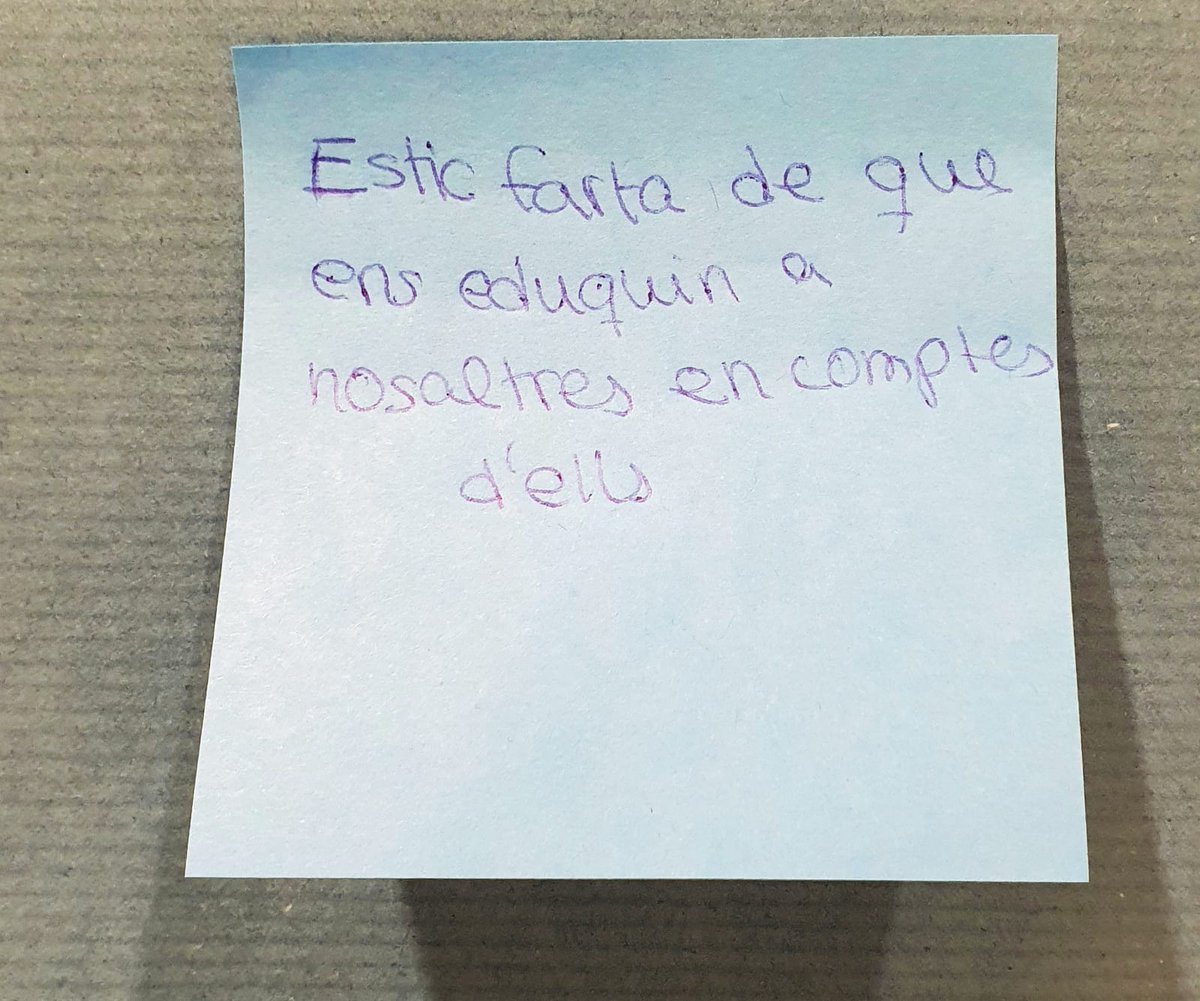 Estic farta de que
ens eduquin a
nosaltres en comptes
d'ells